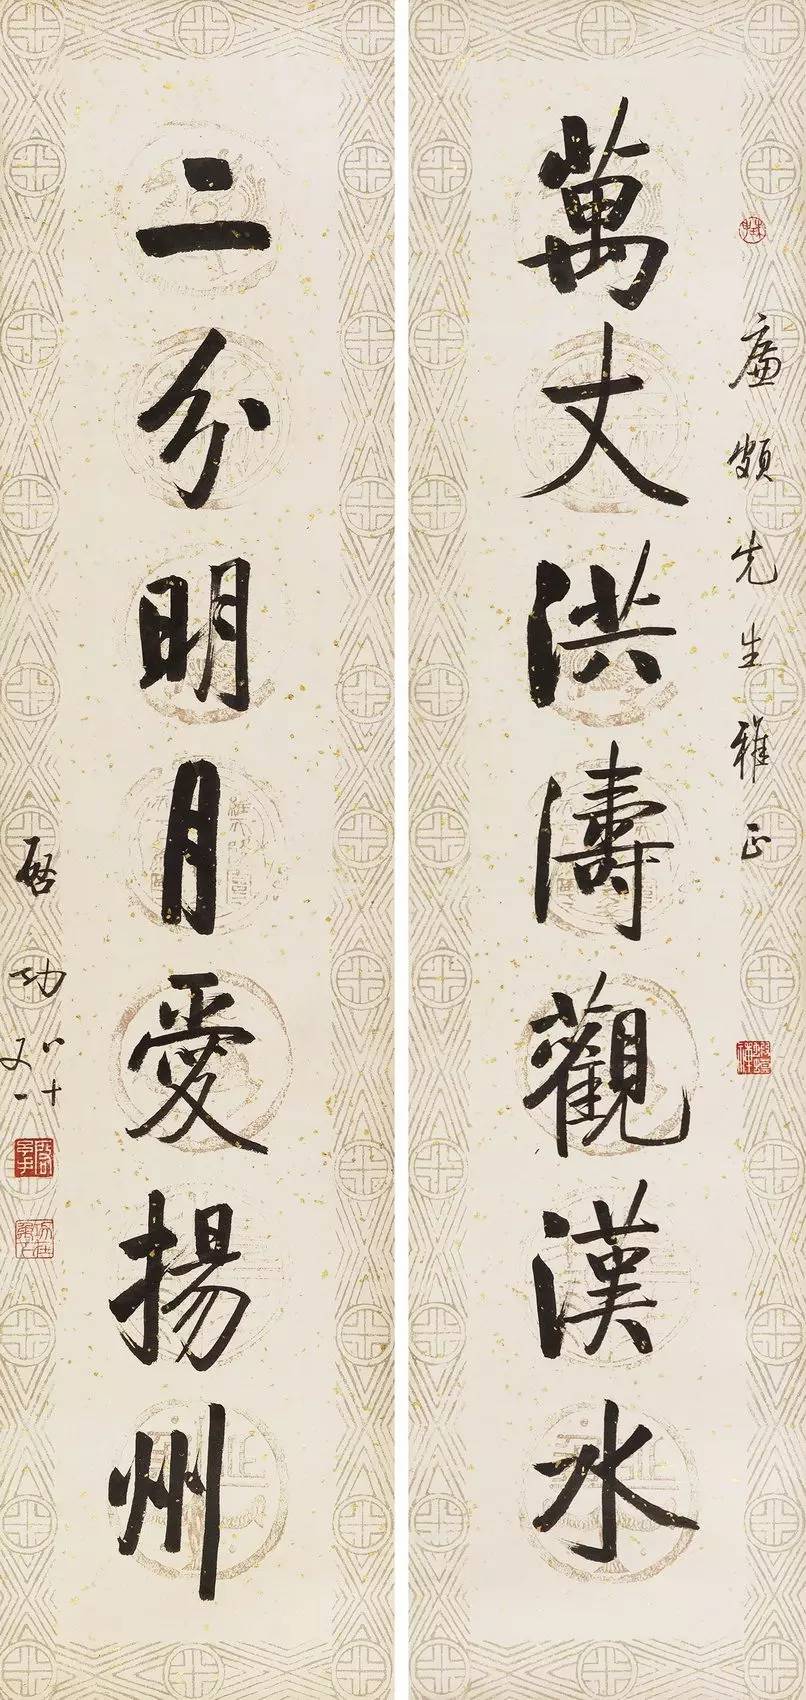 萬丈洪濤觀漢水
先生雅正
二分明月愛揚州
啓功
八十又一